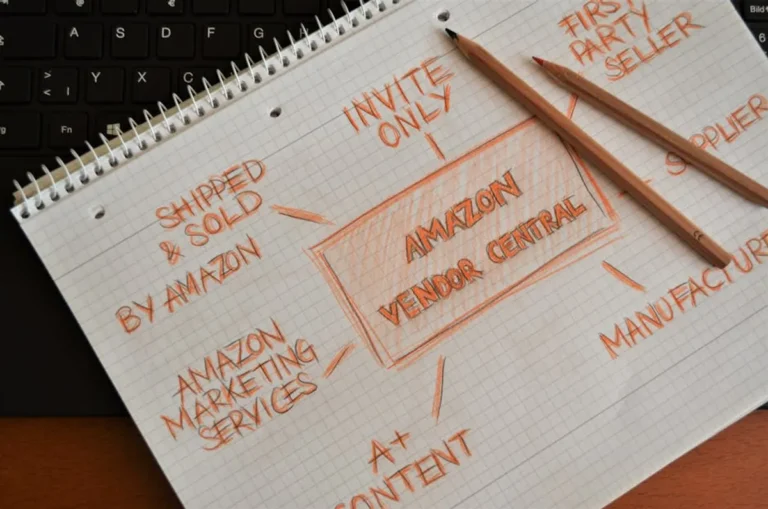 A S D F G
> < | Y X C
Fn
Bild
6
INVITE
ONLY
FIRST
PARTY
SELLER
SUPPLIER
MANUFACTURE
A+
CONTENT
AMAZON
MARKETING
SERVICES
SHIPPED
& SOLD
BY AMAZON
AMAZON
VENDOR CENTRAL